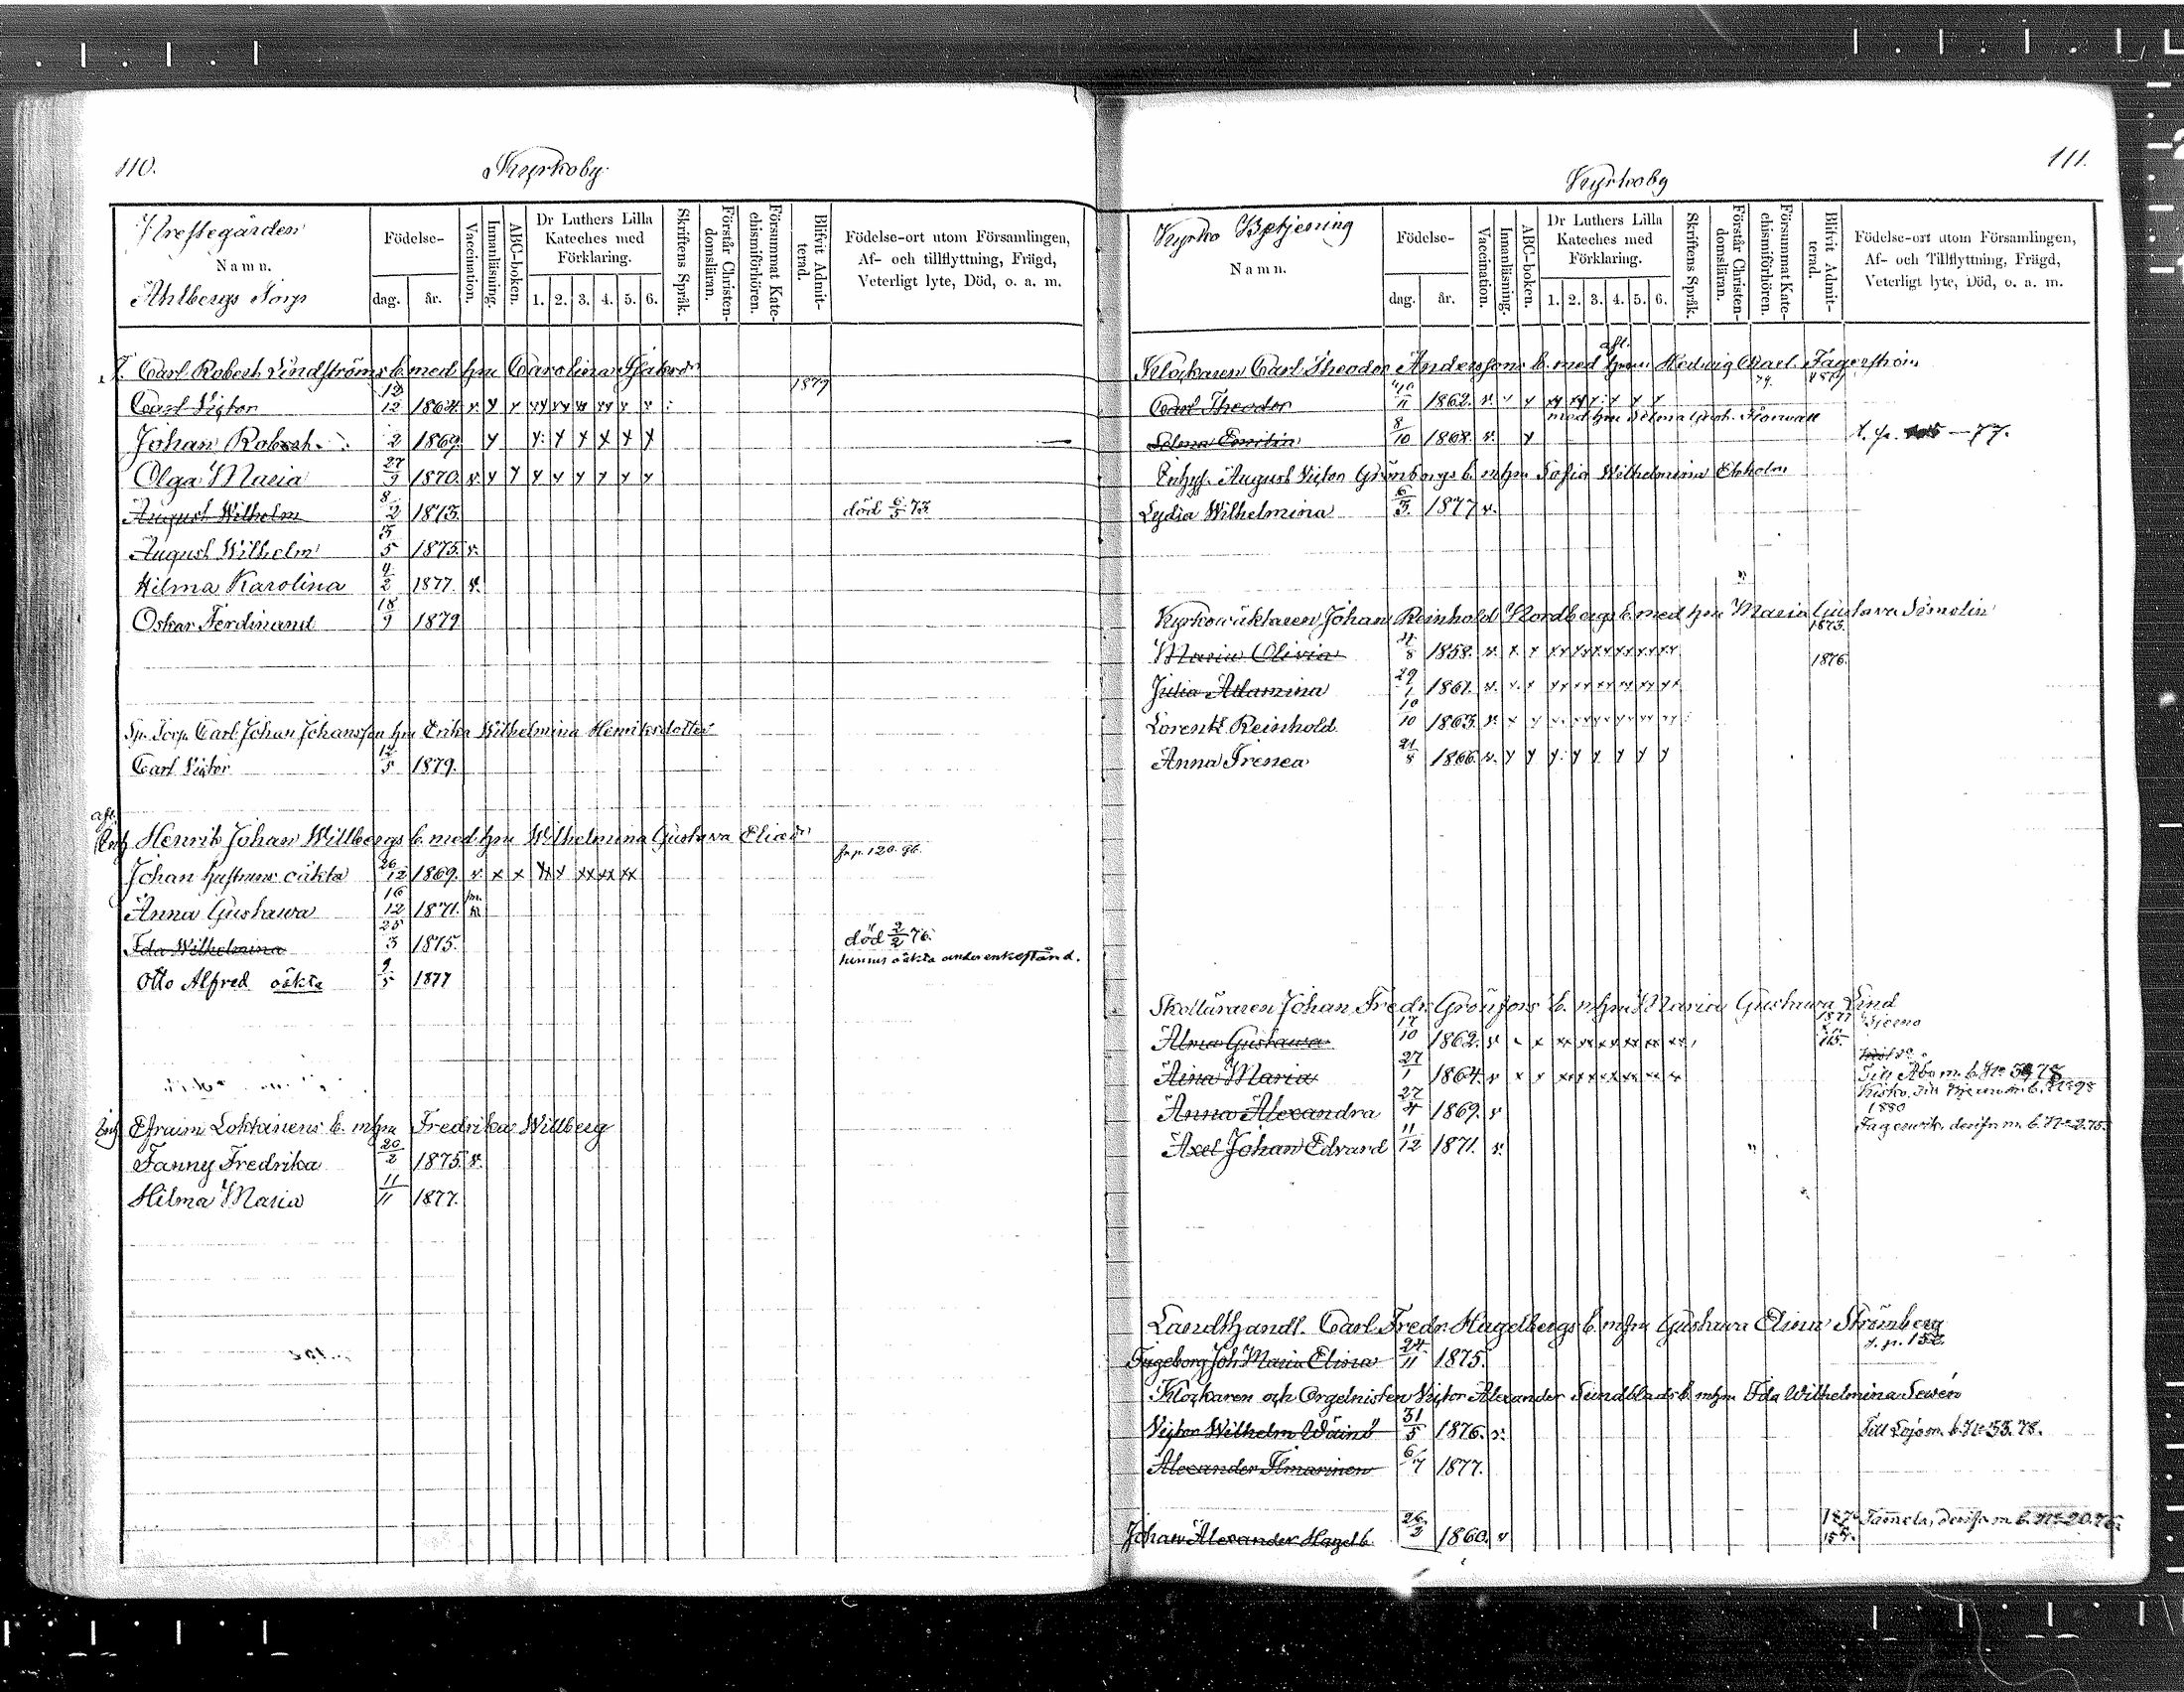 110.
Kyrkoby
Prestegården
Namn.
Ahlbergs Torp
Födelse-
dag.
år.
Vaccination.
Innanläsning.
ABC-boken.
Dr Luthers Lilla
Kateches med
Förklaring.
1. 2. 3. 4. 5. 6.
Skriftens Språk.
Förstår Christen-
domsläran.
Försummat Kate-
chismiförhören.
Blifvit Admit-
terad.
Födelse-ort utom Församlingen,
Af- och tillflyttning, Frägd,
Veterligt lyte, Död, o. a. m.
T. Carl Robert Lindströms b. med hu Carolina
Carl Victor 12/12 1864. v. 1879
Johan Robert 2 1869
Olga Maria 27/9 1870. v.
August Wilhelm 8/2 1873. död 6/5 73.
August Wilhelm 3/5 1875. v.
Hilma Karolina 4/2 1877. v.
Oskar Ferdinand 18/9 1879
Sp. Torp. Carl Johan Johansson hu Erika Wilhelmina Henriksdotter
Carl Victor 12/5 1879.
afl.
Inh Henrik Johan Willbergs b. med hu Wilhelmina Gustava Eliedr
fr. p. 120. gb.
Johan hustruns oäkta 26/12 1869. v x x xx x xx xx xx
Anna Gustawa 16/12 1871.
Ida Wilhelmina 25/3 1875. död 2/2 76.
Otto Alfred oäkta 9/5 1877 hennes oäkta under enkestånd.
Inh Efraim Loktanens b. m hu Fredrika Willberg
Fanny Fredrika 20/2 1875. v.
Hilma Maria 11/11 1877.
111.
Kyrkoby
Kyrko Betjening
Namn.
Födelse-
dag.
år.
Vaccination.
Innanläsning.
ABC-boken.
Dr Luthers Lilla
Kateches med
Förklaring.
1. 2. 3. 4. 5. 6.
Skriftens Språk.
Förstår Christen-
domsläran.
Försummat Kate-
chismiförhören.
Blifvit Admit-
terad.
Födelse-ort utom Församlingen,
Af- och Tillflyttning, Frägd,
Veterligt lyte, Död, o. a. m.
Klockaren Carl Theodor Anderssons b. med afl. hu Hedwig Carol. Fagerström
Carl Theodor 11 1862. v.
med hu Selma Gust. Florwall
Selma Emilia 8/10 1868. v. 77.
Inhys. August Victor Grönbergs b. m hu Sofia Wilhelmina Ekholm
Lydia Wilhelmina 6/3 1877 v.
Kyrkowäktaren Johan Reinhold Nordbergs b. med hu Maria Gustava Simolin
Maria Olivia 8 1858. v. 1873.
Julia Adamina 29/1 1861. v. 1876.
Lorentz Reinhold 10/10 1863. v.
Anna Irenea 21/8 1866. v.
Skolläraren Johan Fredr. Grönfors b. m hu Maria Gustawa Lind
Alma Gustawa 17/10 1862. v 1877
Aina Maria 27/1 1864. v Till Åbo m. b. No 78
Anna Alexandra 27/4 1869. v 1880
Axel Johan Edvard 11/12 1871. v. Fagervik, derifr. m. b. No 2.75.
Landthandl. Carl Fredr. Hagelbergs b. m hu Gustava Elina Strömberg
Ingeborg Joh. Maria Elina 24/11 1875.
Klockaren och Orgelnisten Victor Alexander Sundblads b. m hu Ida Wilhelmina Sevén
Victor Wilhelm Wäinö 31/5 1876. v. Till Lojo m. b. No 55.78.
Alexander Ilmarinen 6/7 1877.
Johan Alexander Hagelb. 26/2 1860. v derifr. m. b. No 20.